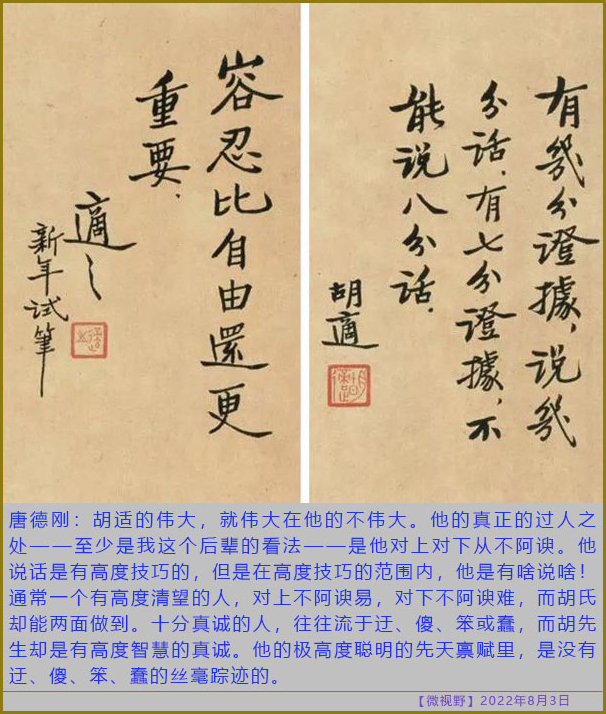 容忍比自由還更
重要.
適之
新年试筆
有幾分證據，说幾
分话，有七分證據，不
能说八分话.
胡適
唐德刚：胡适的伟大，就伟大在他的不伟大。他的真正的过人之
处——至少是我这个后辈的看法——是他对上对下从不阿谀。他
说话是有高度技巧的，但是在高度技巧的范围内，他是有啥说啥！
通常一个有高度清望的人，对上不阿谀易，对下不阿谀难，而胡氏
却能两面做到。十分真诚的人，往往流于迂、傻、笨或蠢，而胡先
生却是有高度智慧的真诚。他的极高度聪明的先天禀赋里，是没有
迂、傻、笨、蠢的丝毫踪迹的。
【微视野】2022年8月3日